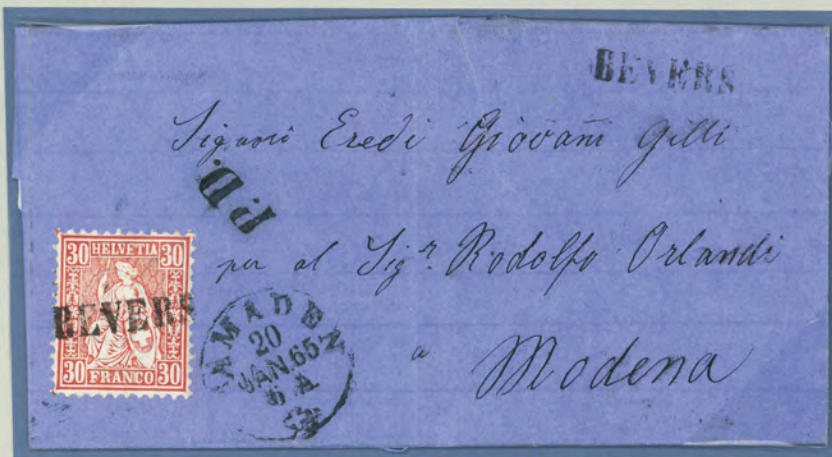 BEVERS
Signori Eredi Giovani Gilli
P.D.
per al Sigr. Rodolfo Orlandi
30 HELVETIA 30
BEVERS
30 FRANCO 30
AMADEN
20
JAN 65
a
Modena